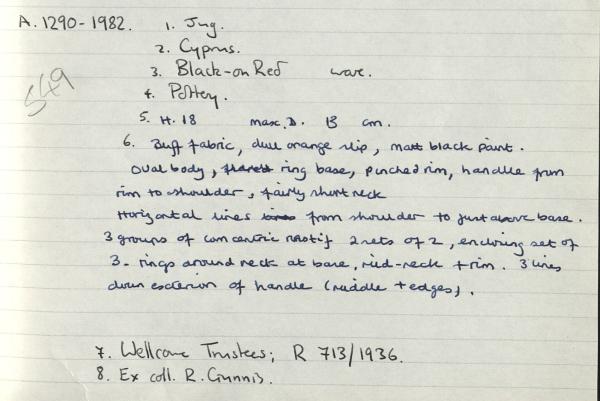 A. 1290-1982. 1. Jug.
2. Cyprus.
3. Black-on Red ware.
4. Pottery.
549
5. H. 18 max. D. 13 cm.
6. Buff fabric, dull orange slip, matt black paint.
Oval body, ring base, pinched rim, handle from
rim to shoulder, fairly short neck
Horizontal lines from shoulder to just above base.
3 groups of concentric motif 2 sets of 2, enclosing set of
3 - rings around neck at base, mid-neck + rim. 3 lines
down exterior of handle (middle + edges).
7. Wellcome Trustees; R 713/1936.
8. Ex coll. R. Gunnis.